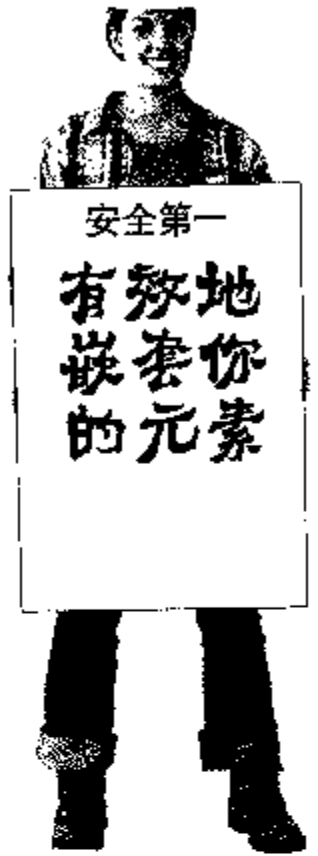 安全第一
有效地
嵌套你
的元素